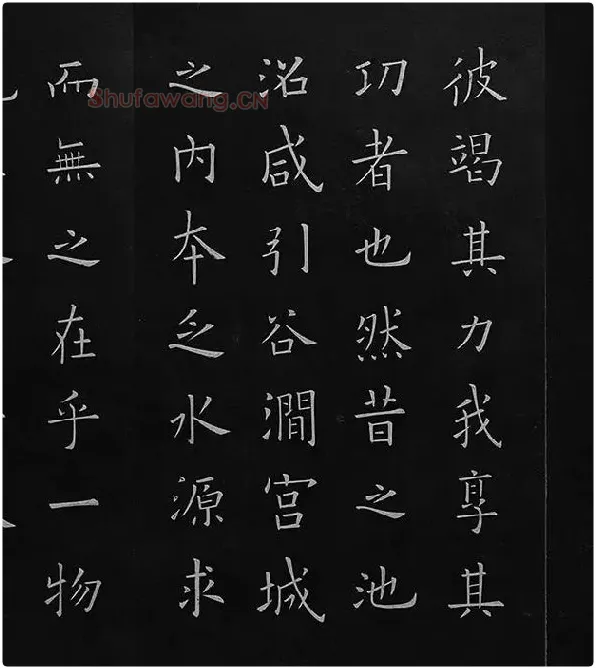 彼竭其力我享其
功者也然昔之池
沼咸引谷澗宮城
之內本乏水源求
而無之在乎一物
Shufawang.CN